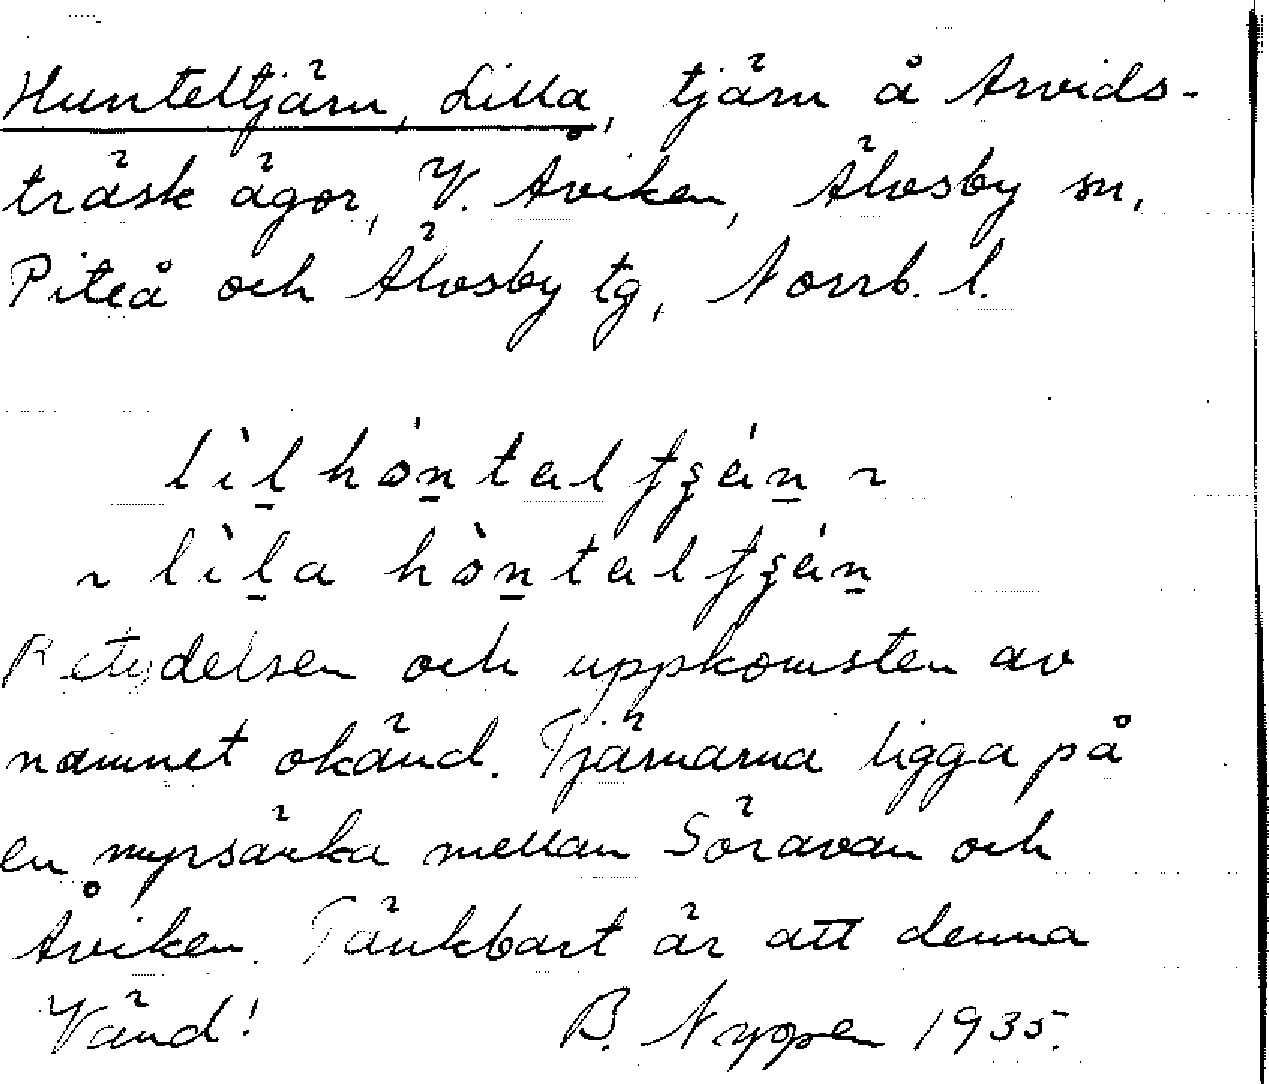 Hunteltjärn, Lilla, tjärn å Arvids-
träsk ägor, V. Åviken, Älvsby sn,
Piteå och Älvsby tg, Norrb. l.
Betydelsen och uppkomsten av
namnet okänd. Tjärnarna ligga på
en myrsänka mellan Söravan och
Åviken. Tänkbart är att denna
Vänd! B. Nygren 1935.